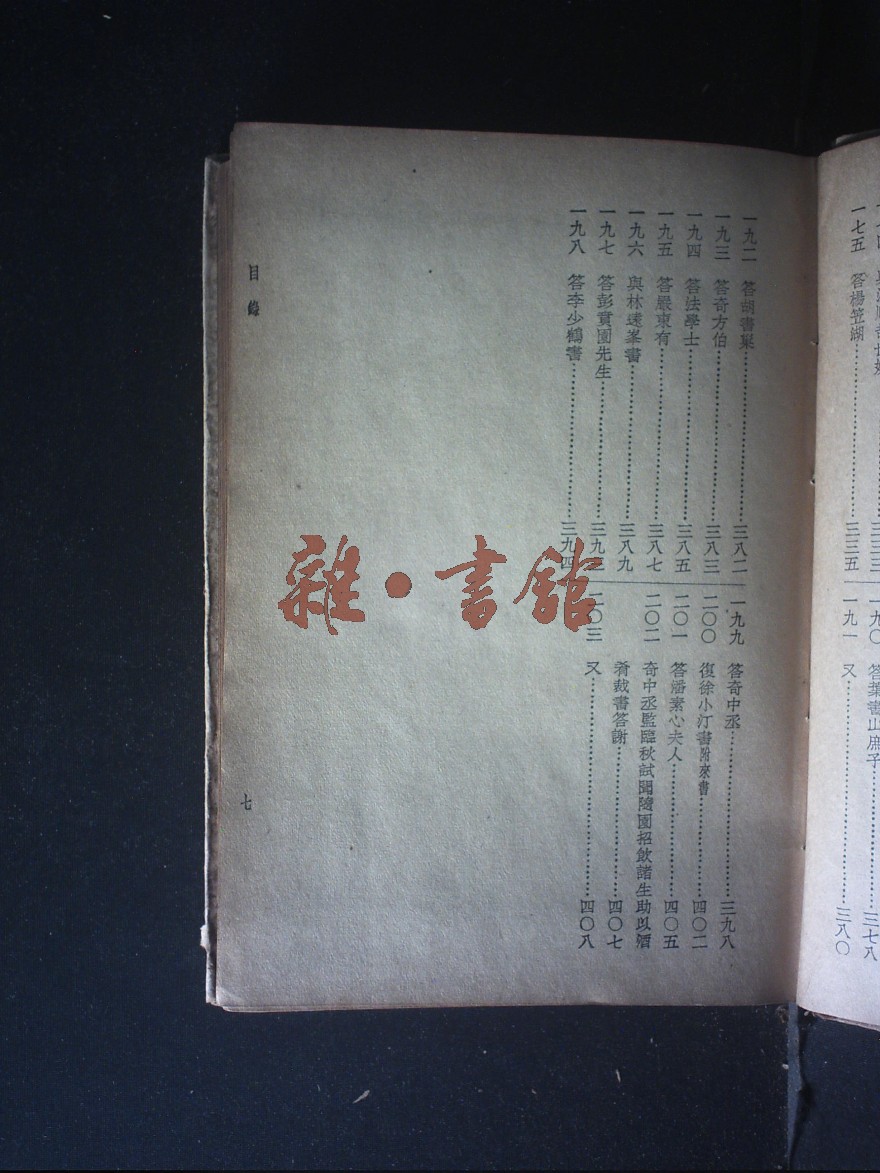 一七五 答楊笠湖……三三五
一九〇 答葉書山庶子……三七八
一九一 又……三八〇
一九二 答胡書巢……三八二
一九三 答奇方伯……三八三
一九四 答法學士……三八五
一九五 答嚴東有……三八七
一九六 與林遠峯書……三八九
一九七 答彭賁園先生……三九二
一九八 答李少鶴書……三九四
一九九 答奇中丞……三九八
二〇〇 復徐小汀書附來書……四〇二
二〇一 答潘素心夫人……四〇五
二〇二 奇中丞監臨秋試聞隨園招飲諸生助以酒
肴裁書答謝……四〇七
二〇三 又……四〇八
目錄
七
雜·書館